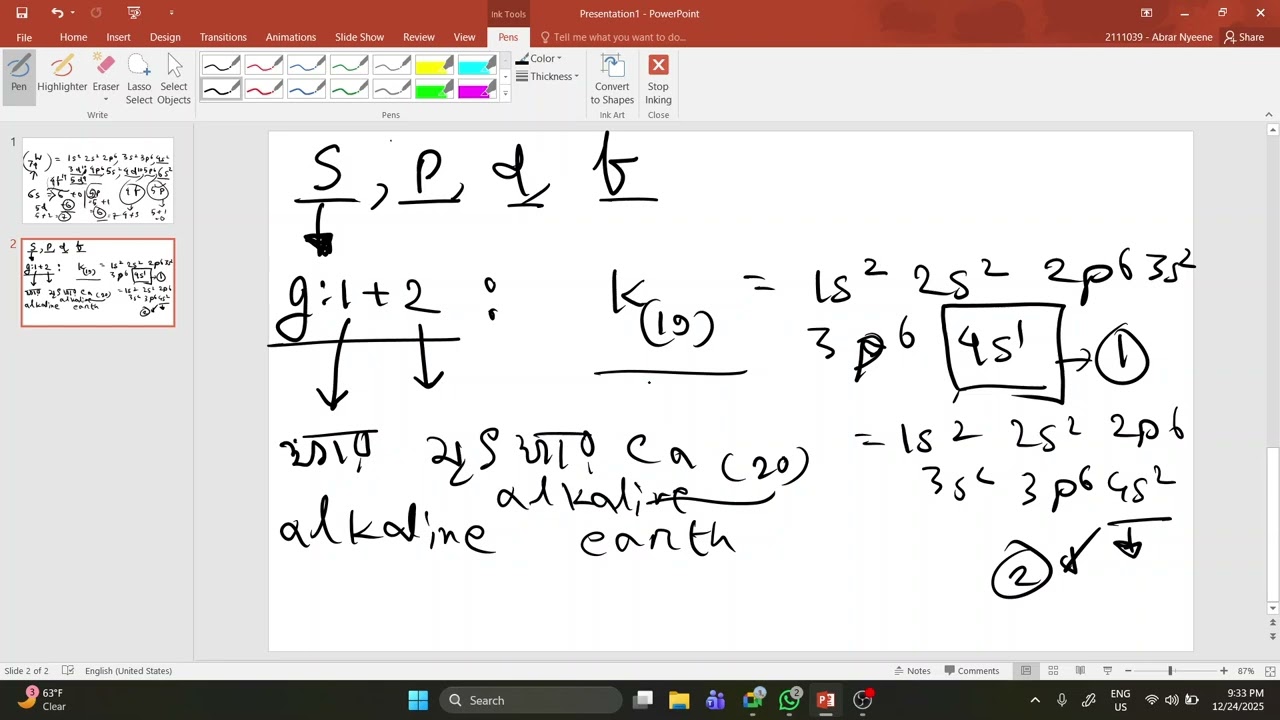 Ink Tools
Presentation1 - PowerPoint
File Home Insert Design Transitions Animations Slide Show Review View Pens Tell me what you want to do... 2111039 - Abrar Nyeene Share
Pen Highlighter Eraser Lasso Select Select Objects
Color
Thickness
Convert to Shapes
Stop Inking
Write Pens Ink Art Close
1
2
S, P, d f
g:1+2 : K(19) = 1s² 2s² 2p⁶ 3s²
3p⁶ 4s¹ → 1
ক্ষার মৃৎক্ষার Ca (20) = 1s² 2s² 2p⁶
3s² 3p⁶ 4s²
alkaline alkaline earth
2
Slide 2 of 2 English (United States) Notes Comments 87%
3
63°F
Clear
Search
1
2
ENG
US
9:33 PM
12/24/2025